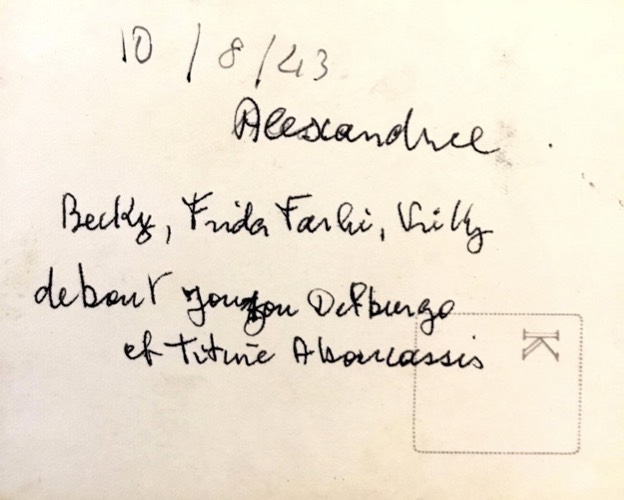 10/8/43
Alexandrie
Becky, Frida Farhi, Vicky
debout Joujou Delburgo
et Titine Aboucassis
K